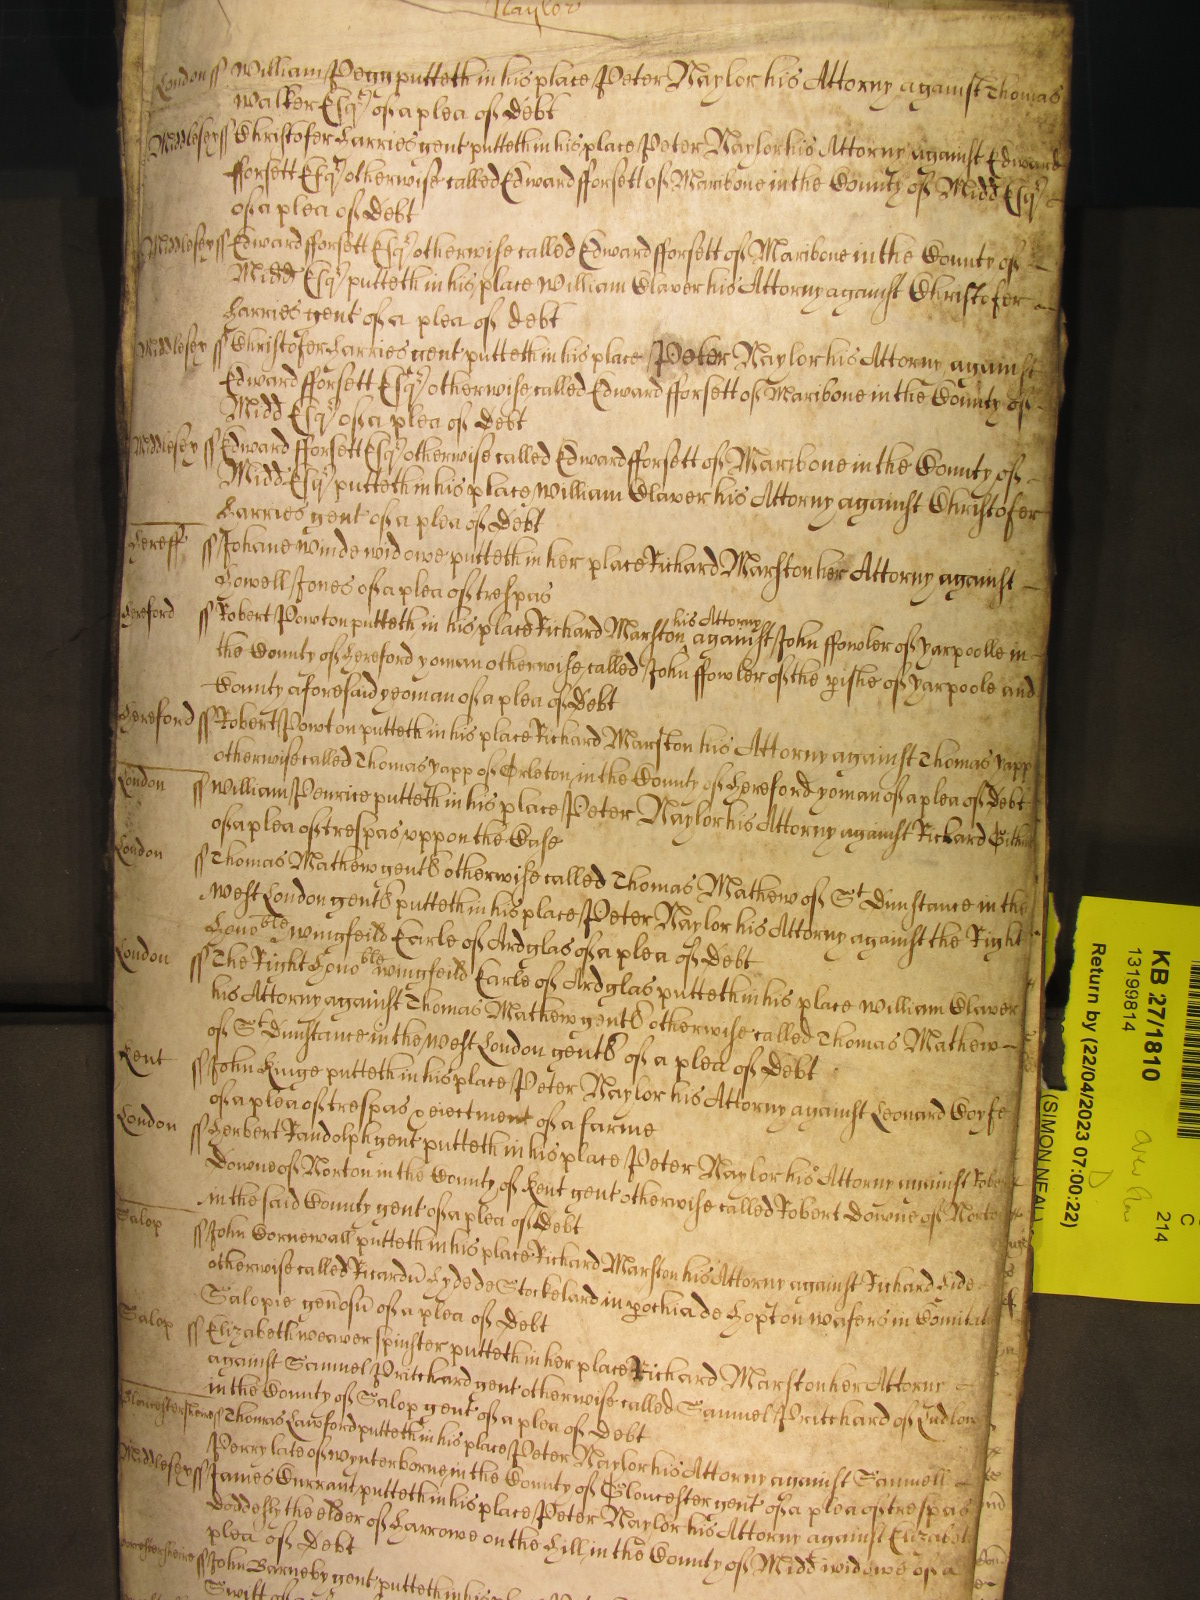 Naylor
London ss William Pegg putteth in his place Peter Naylor his Attorny against Thomas
Walker Esqr of a plea of Debt
Middlesex ss Christofer Harries gent putteth in his place Peter Naylor his Attorny against Edward
fforsett Esqr otherwise called Edward fforsett of Maribone in the County of Midd Esqr
of a plea of Debt
Middlesex ss Edward fforsett Esqr otherwise called Edward fforsett of Maribone in the County of
Midd Esqr putteth in his place William Claver his Attorny against Christofer
Harries gent of a plea of Debt
Middlesex ss Christofer Harries gent putteth in his place Peter Naylor his Attorny against
Edward fforsett Esqr otherwise called Edward fforsett of Maribone in the County of
Midd Esqr of a plea of Debt
Middlesex ss Edward fforsett Esqr otherwise called Edward fforsett of Maribone in the County of
Midd Esqr putteth in his place William Claver his Attorny against Christofer
Harries gent of a plea of Debt
Hereff ss Johane Winde widowe putteth in her place Richard Marston her Attorny against
Howell Jones of a plea of trespas
Hereford ss Robert Powton putteth in his place Richard Marston his Attorny against John ffowler of Yarpoolle in
the County of Hereford yoman otherwise called John ffowler of the pishe of Yarpoole and
County aforesaid yeoman of a plea of Debt
Hereford ss Robert Powton putteth in his place Richard Marston his Attorny against Thomas Yapp
otherwise called Thomas Yapp of Orleton in the County of Hereford yoman of a plea of Debt
London ss William Penrice putteth in his place Peter Naylor his Attorny against Richard
of a plea of trespas uppon the Case
London ss Thomas Mathew gent otherwise called Thomas Mathew of St Dunstance in the
West London gent putteth in his place Peter Naylor his Attorny against the Right
Honoble Wingfeild Earle of Ardglas of a plea of Debt
London ss The Right Honoble Wingfeild Earle of Ardglas putteth in his place William Claver
his Attorny against Thomas Mathew gent otherwise called Thomas Mathew
of St Dunstance in the West London gent of a plea of Debt
Kent ss John Kinge putteth in his place Peter Naylor his Attorny against Leonard Coyfe
of a plea of trespas & eiectment of a farme
London ss Herbert Randolph gent putteth in his place Peter Naylor his Attorny against Robert
Downe of Norton in the County of Kent gent otherwise called Robert Downe of Norton
in the said County gent of a plea of Debt
Salop ss John Cornewall putteth in his place Richard Marston his Attorny against Richard Hide
otherwise called Ricardu Hyde de Stockelard in pochia de Hopton Wafers in Comitat
Salopie genosu of a plea of Debt
Salop ss Elizabeth Weaver spinster putteth in her place Richard Marston her Attorny
against Samuel Pritchard gent otherwise called Samuel Pritchard of Ludlow
in the County of Salop gent of a plea of Debt
ss Thomas Lawford putteth in his place Peter Naylor his Attorny against Samuell
Perry late of Wynterborne in the County of Gloucester gent of a plea of trespas
Middlesex ss James Currant putteth in his place Peter Naylor his Attorny against Elizabeth
Doddesly the elder of Harrowe on the Hill in the County of Midd widowe of a
plea of Debt
ss John Barneby gent putteth in his
KB 27/1810
13199814
Return by (22/04/2023 07:00:22)
(SIMON NEAL)
214
C
D